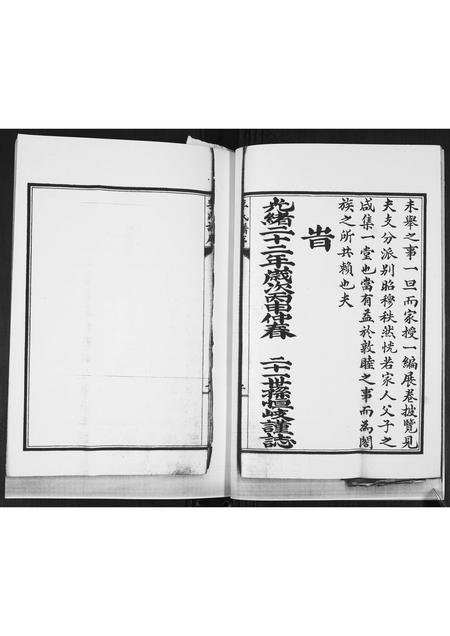 未舉之事一旦而家授一編展卷披覽見
夫支分派別昭穆秩然恍若家人父子之
咸集一堂也當有益於敦睦之事而為闔
族之所共賴也夫
旹
光緒二十二年歲次丙申仲春 二十一世孫恒岐謹誌